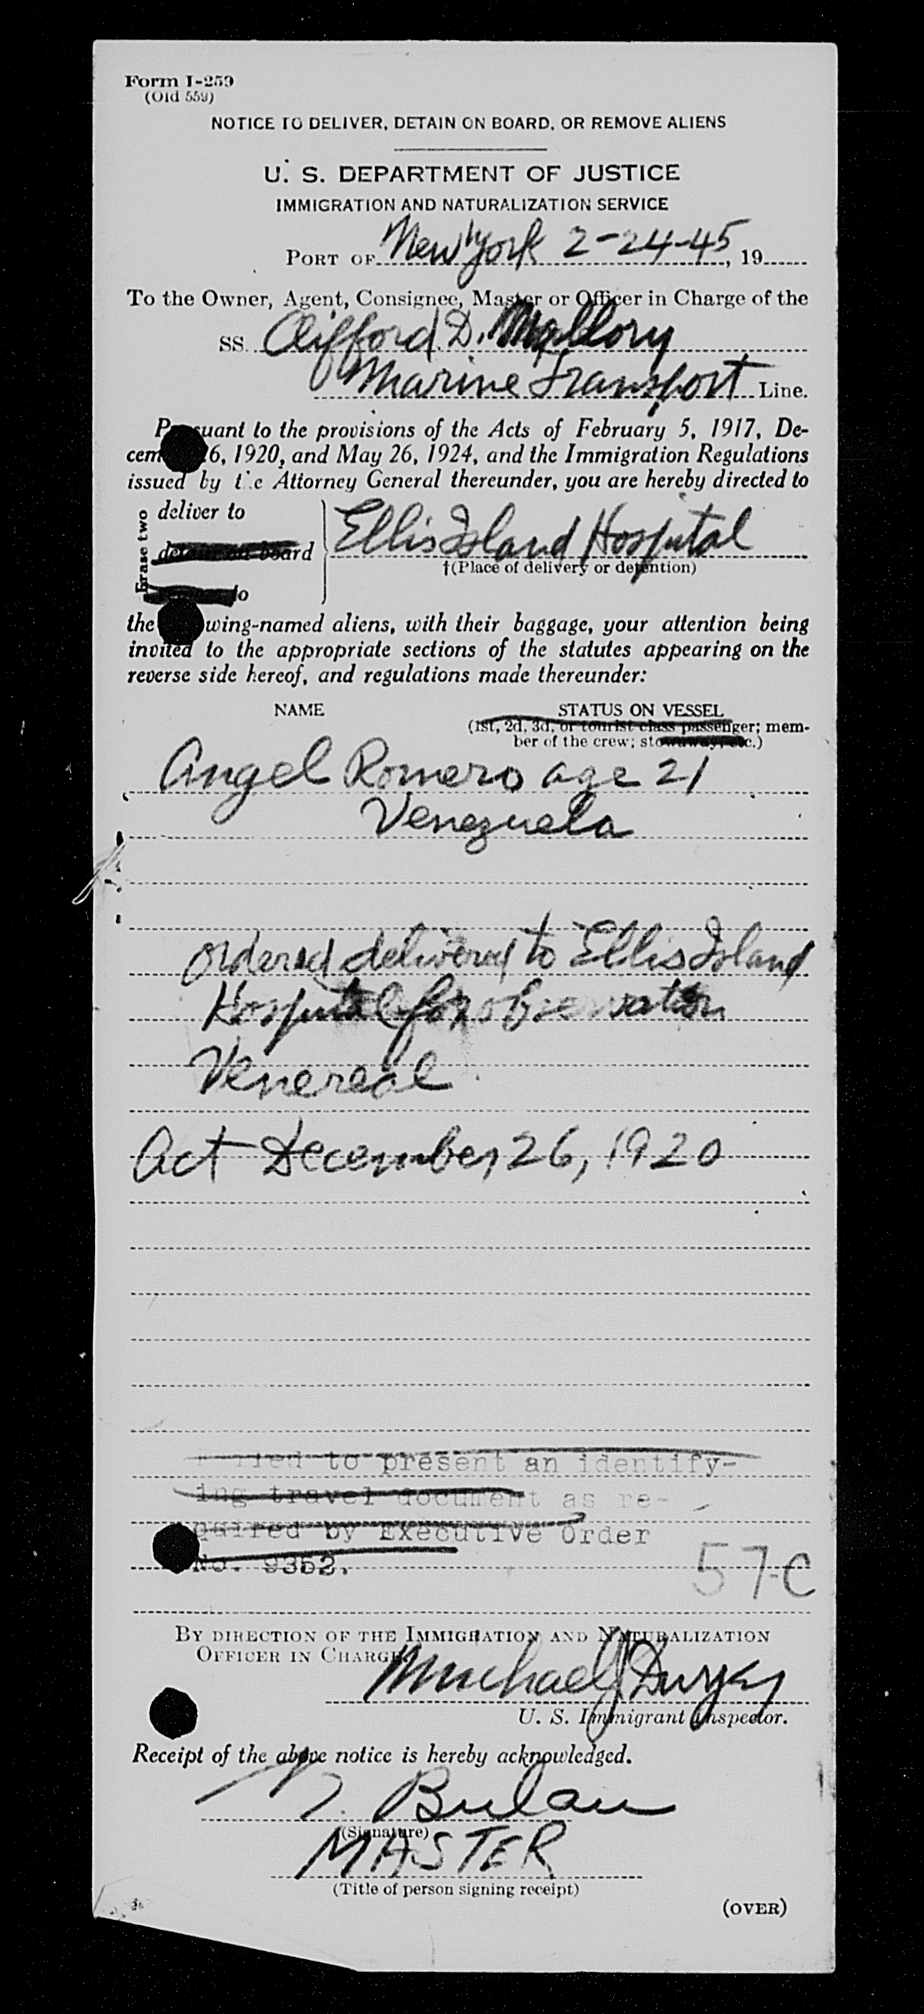 Form I-259
(Old 559)
NOTICE TO DELIVER, DETAIN ON BOARD, OR REMOVE ALIENS
U. S. DEPARTMENT OF JUSTICE
IMMIGRATION AND NATURALIZATION SERVICE
PORT OF New York 2-24-45, 19
To the Owner, Agent, Consignee, Master or Officer in Charge of the
SS. Clifford D. Mallory
Marine Transport Line.
Pursuant to the provisions of the Acts of February 5, 1917, De-
cem 26, 1920, and May 26, 1924, and the Immigration Regulations
issued by the Attorney General thereunder, you are hereby directed to
Erase two
deliver to
detain on board
to
Ellis Island Hospital
†(Place of delivery or detention)
the wing-named aliens, with their baggage, your attention being
invited to the appropriate sections of the statutes appearing on the
reverse side hereof, and regulations made thereunder:
NAME STATUS ON VESSEL
(1st, 2d, 3d, or tourist class passenger; mem-
ber of the crew; stowaway, etc.)
Angel Romero age 21
Venezuela
Ordered delivered to Ellis Island
Hospital for observation
Venereal
Act December 26, 1920
Failed to present an identify-
ing travel document as re-
quired by Executive Order
No. 9352.
57-C
BY DIRECTION OF THE IMMIGRATION AND NATURALIZATION
OFFICER IN CHARGE
Michael J
U. S. Immigrant Inspector.
Receipt of the above notice is hereby acknowledged.
Bulau
(Signature)
MASTER
(Title of person signing receipt)
(OVER)